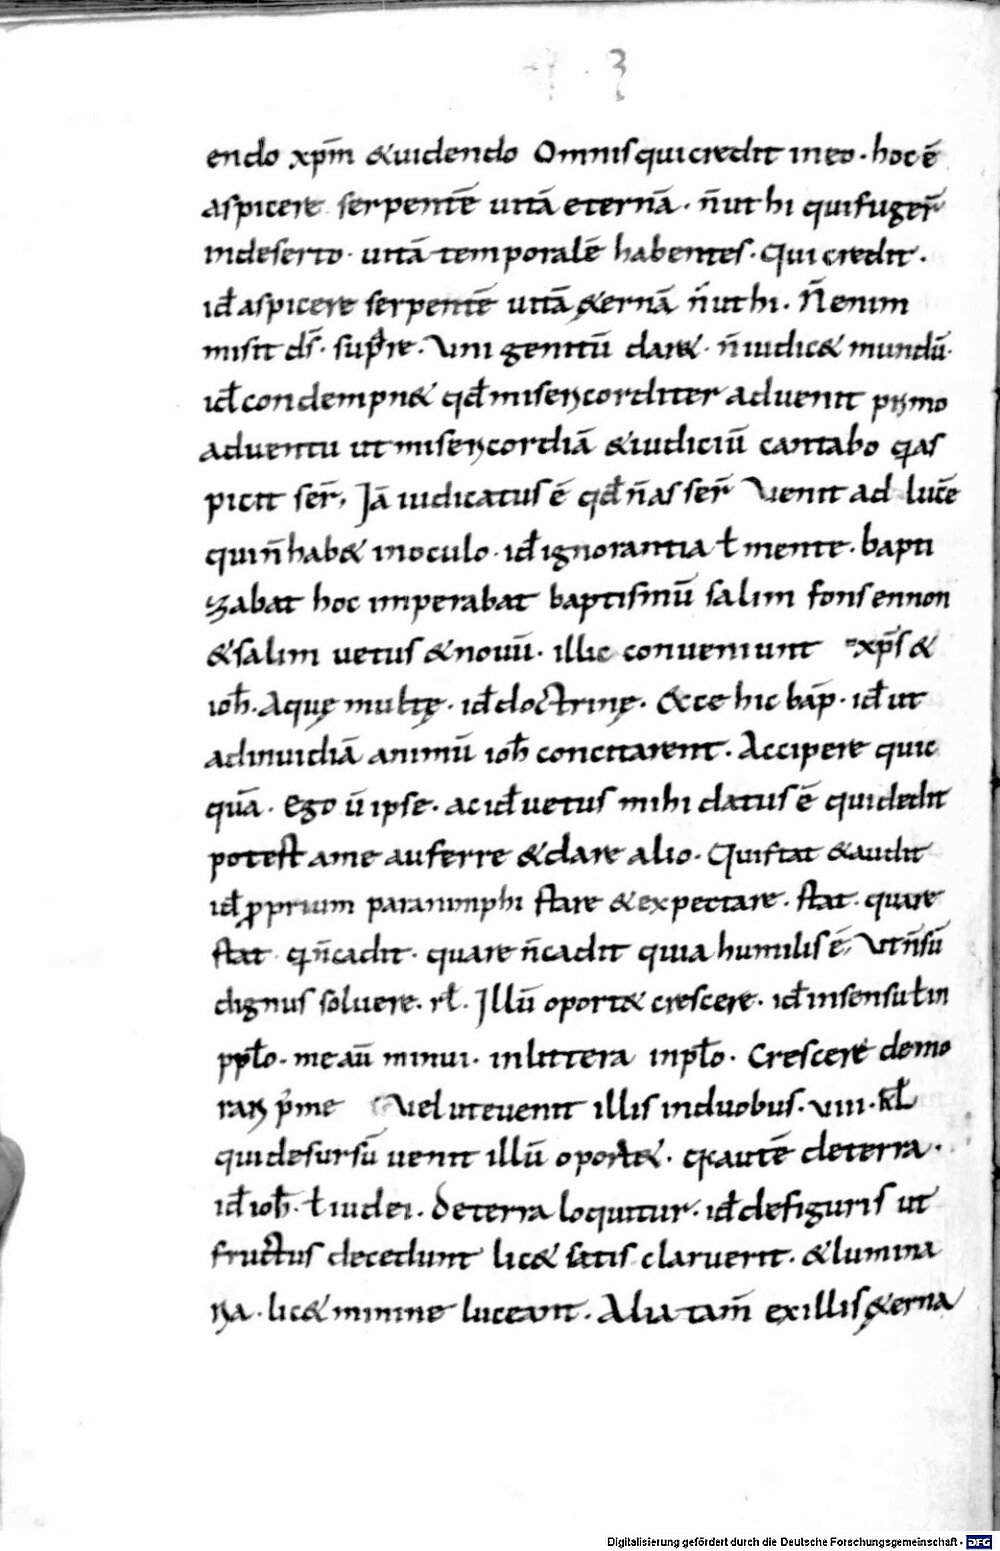 endo xp̄m &uidendo Omnisquicredit ineo · hoc ē
aspicere serpentē uitā eternā · n̄ ut hi quifuger̄
indeserto · uitā temporalē habentes · Qui credit ·
id̄ aspicere serpentē uitā &ernā n̄ ut hi · N̄ enim
misit d̄s · sup̄re · Uni genitū dar& · n̄ iudic& mundū ·
id̄ condempn& qd̄ misericorditer aduenit primo
aduentu ut misericordiā &iudiciū cantabo qas
picit ser̄, Jā iudicatus ē qd̄ n̄as ser̄ Uenit ad lucē
qui n̄ hab& inoculo · id̄ ignorantia ł mente · bapti
zabat hoc imperabat baptismū salim fons ennon
&salim uetus &nouū · illic conueniunt xp̄s &
ioh̄ · Aquę multę · id̄ doctrinę · Ecce hic bap̄ · id̄ ut
adinuidiā animū ioh̄ concitarent · Accipere quic
quā · Ego ū ipse · ac id̄ uetus mihi datus ē quidedit
potest ame auferre &dare alio · Qui stat &audit
id̄ ꝓprium paranimphi stare &expectare · stat · quare
stat q n̄cadit · quare n̄cadit quia humilis ē, Ut n̄ sū
dignus soluere · rł · Jllū oport& crescere · id̄ insensu ł in
ppło · me aū minui · inlittera inpło · Crescere demo
rari p̄me Uel uteuenit illis induobus · uiii · kł
quidesursū uenit illū oport& · q autē deterra ·
id̄ ioh̄ · ł iudei · Deterra loquitur · id̄ defiguris ut
fructus decedunt lic& satis claruerit · &lumina
ria · lic& minime luceant · Alia tam̄ exillis &erna
Digitalisierung gefördert durch die Deutsche Forschungsgemeinschaft - DFG